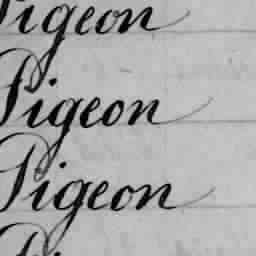 Pigeon
Pigeon
Pigeon